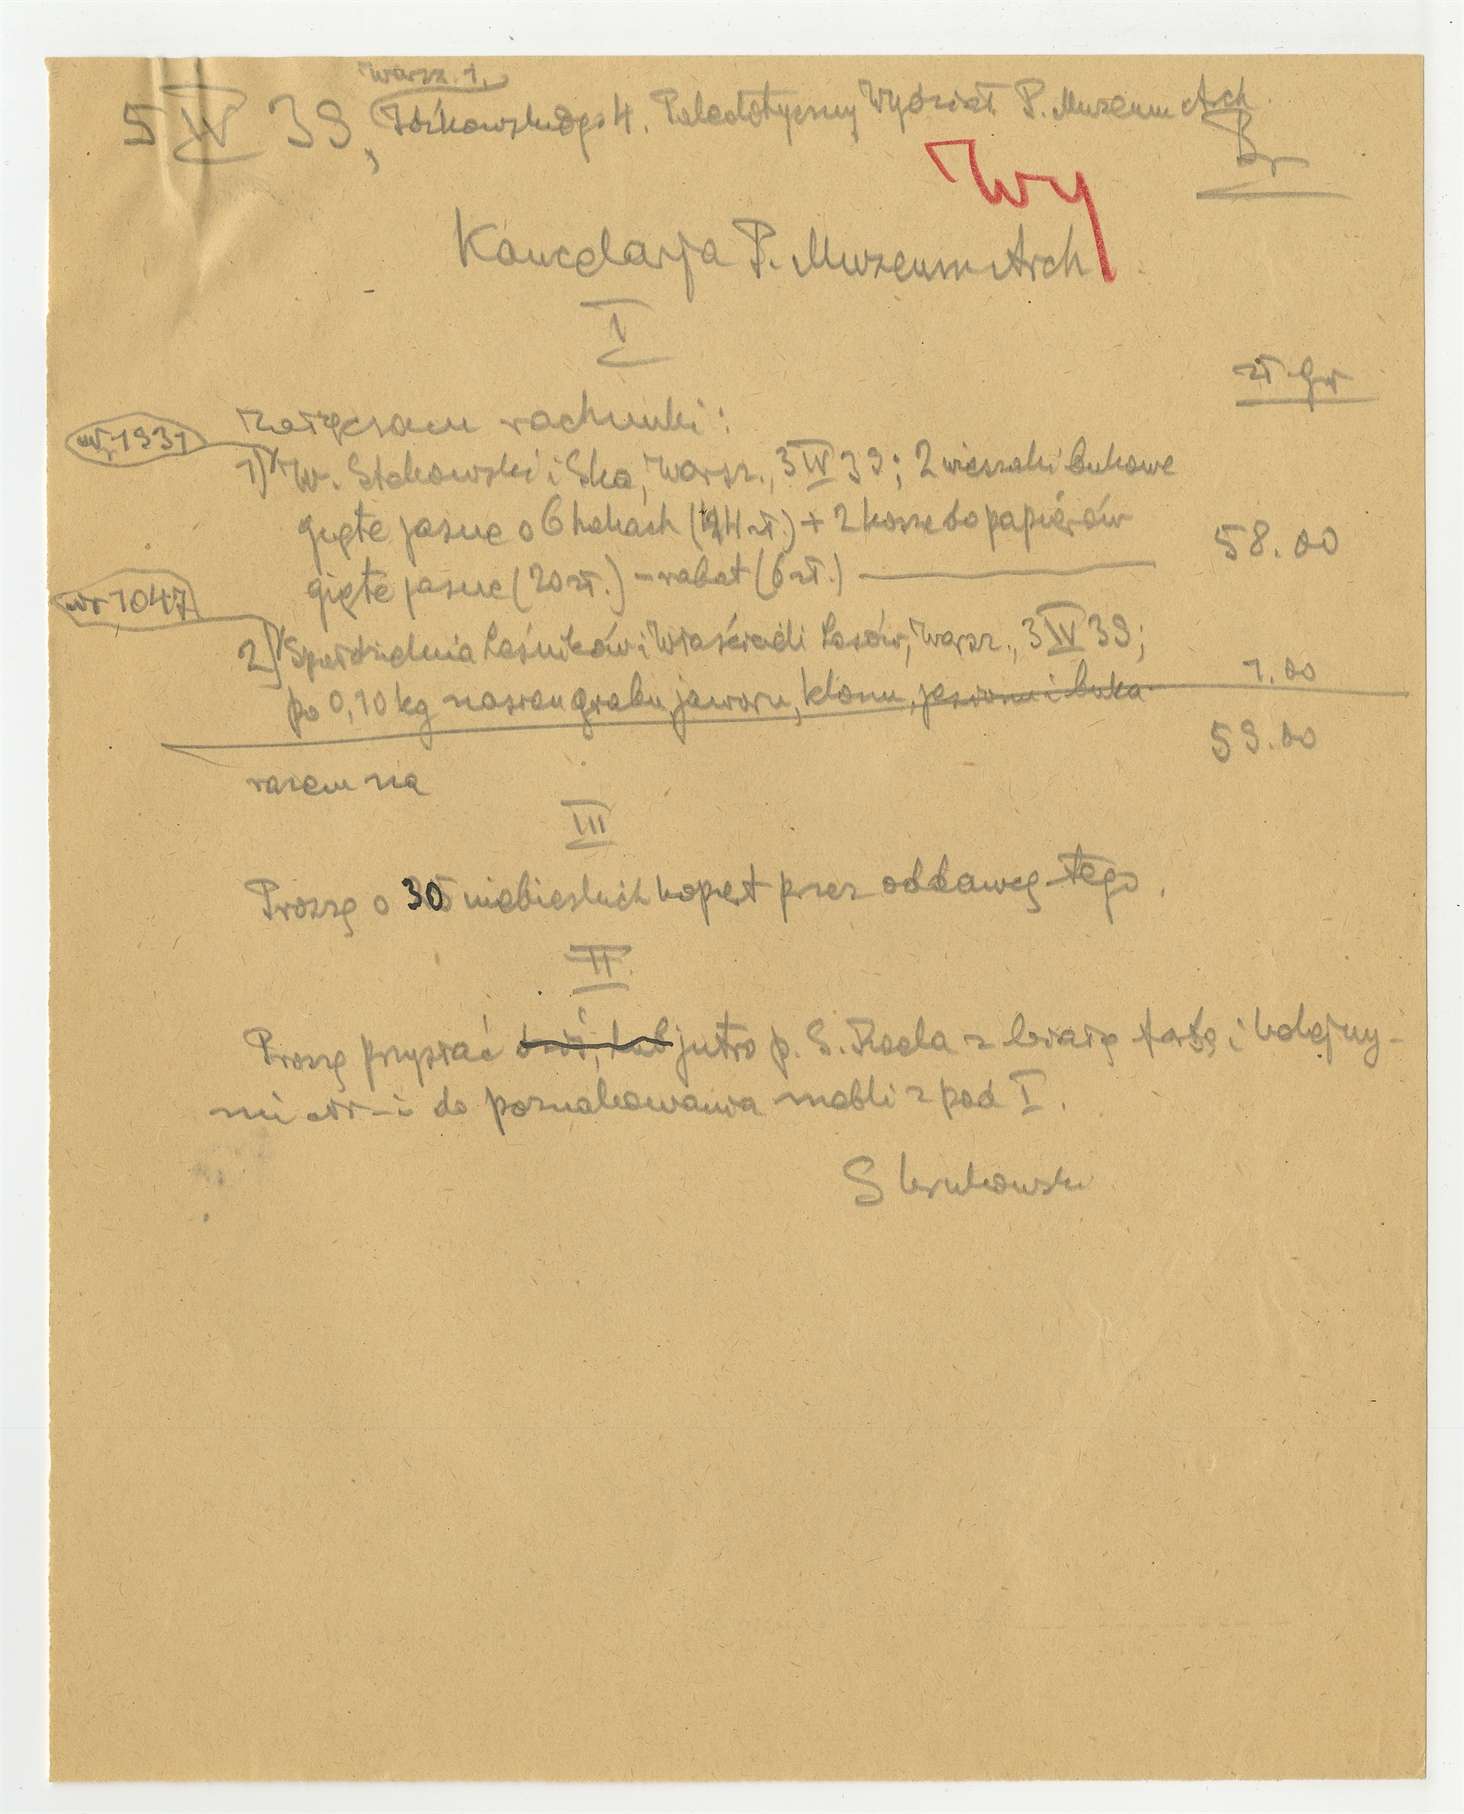 Warsz. 1.
5 IV 39, 4. Paleolityczny Wydział P. Muzeum Arch.
Wy
Kancelarja P. Muzeum Arch
I
zł. Gr
Załączam rachunki:
nr 1931
1) W. i Ska, Warsz., 3 IV 39; 2 wieszaki bukowe
gięte jasne o 6 hakach (44 zł.) + 2 kosze do papierów
gięte jasne (20 zł.) – rabat (6 zł.) 58.00
nr 1047
2) Spółdzielnia Leśników i Właścicieli Lasów, Warsz., 3 IV 39;
po 0,10 kg nasion grabu, jaworu, klonu, jesionu i buka 1.00
razem na 59.00
III
Proszę o 30 niebieskich kopert przez oddawcę tego.
II
Proszę przysłać dziś, lub jutro p. S. z białą farbą i kolejny-
mi nr-i do poznakowania mebli z pod I.
S Krukowski